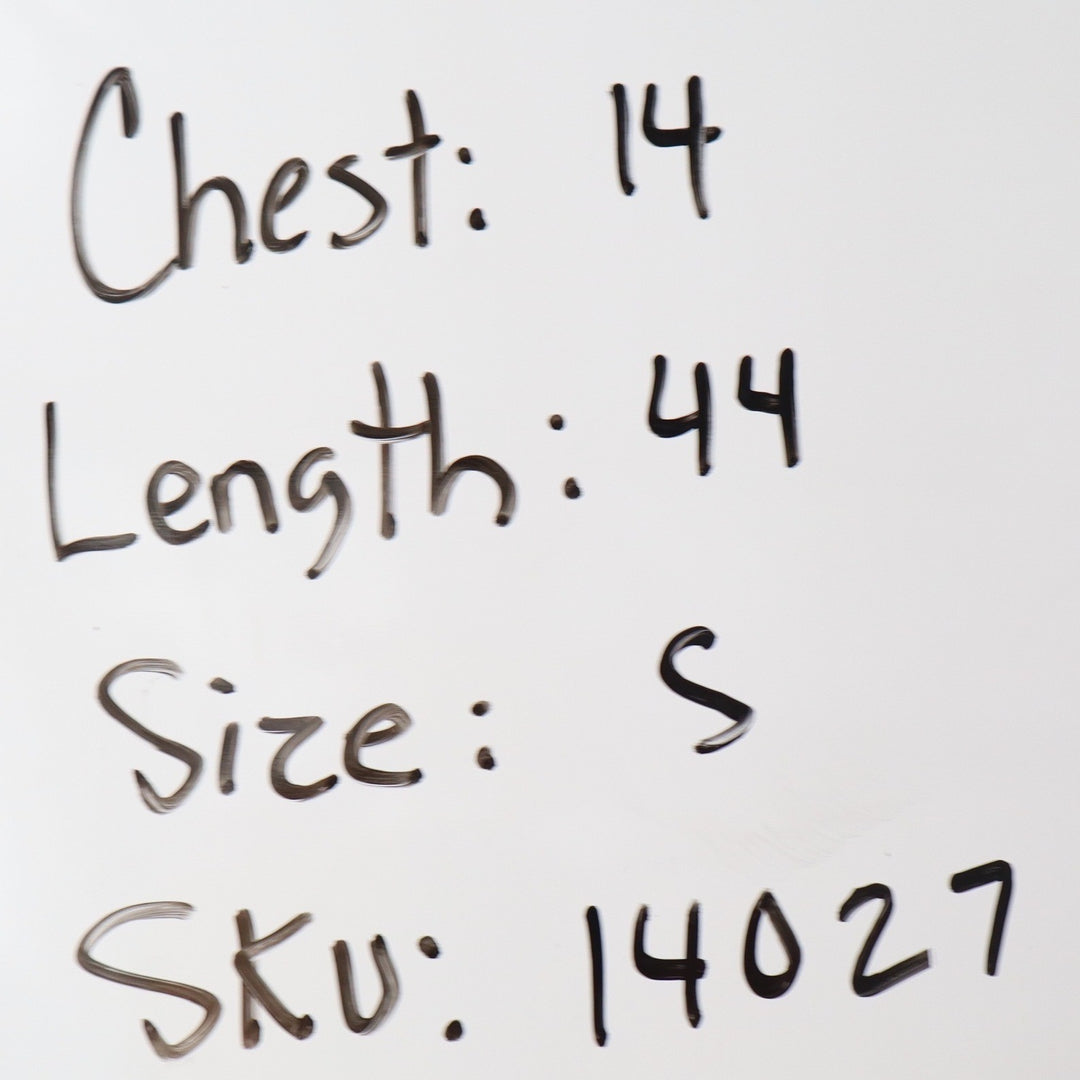 Chest: 14
Length: 44
Size: S
SKU: 14027